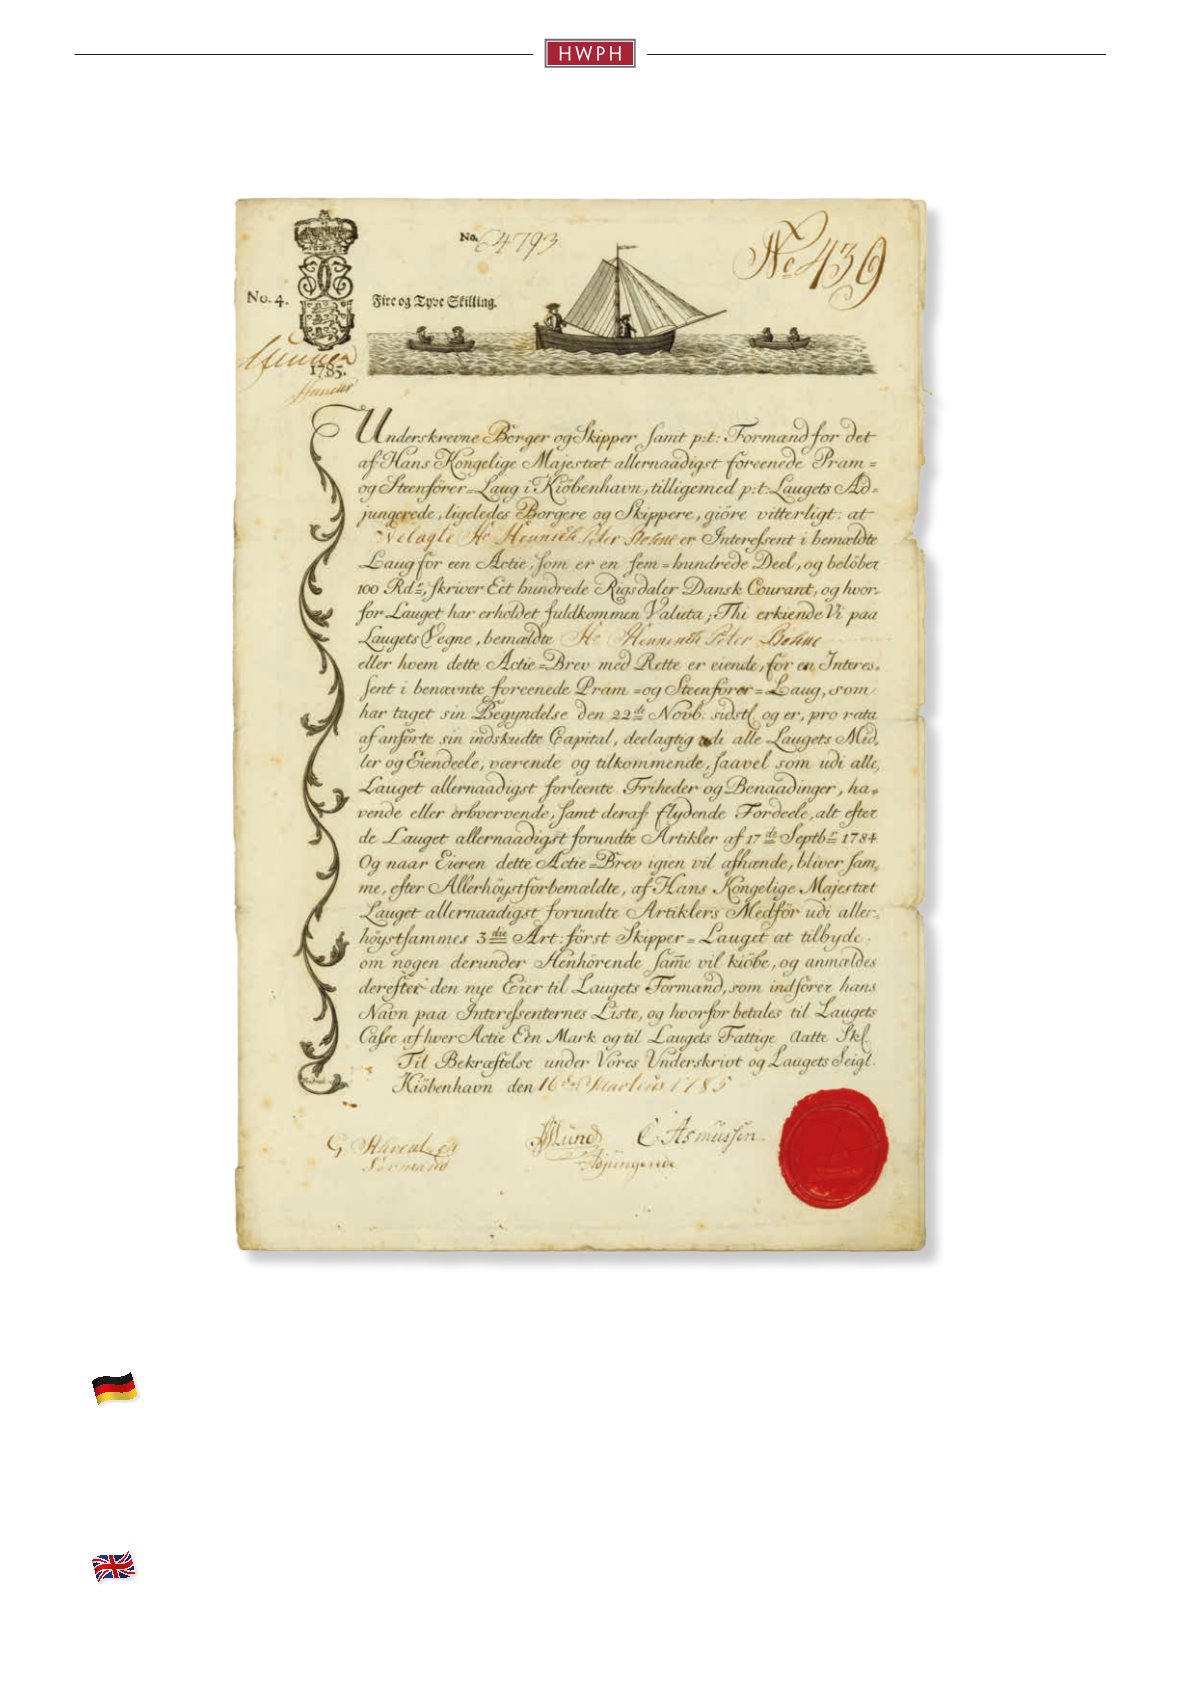 HWPH
No. 4793
No 439
No. 4.
Fire og Tyve Skilling.
1785.
Underskrevne Borger og Skipper samt p:t: Formand for det
af Hans Kongelige Majestæt allernaadigst foreenede Pram=
og Steenförer=Laug i Kiöbenhavn, tilligemed p:t: Laugets Ad=
jungerede, ligeledes Borgere og Skippere, giöre vitterligt: at
Hr Hennrich Peter Bohne er Interessent i bemældte
Laug for een Actie, som er en fem=hundrede Deel, og belöber
100 Rdr, skriver Eet hundrede Rigsdaler Dansk Courant, og hvor=
for Lauget har erholdet fuldkommen Valuta; Thi erkiende Vi paa
Laugets Vegne, bemældte Hr Hennrich Peter Bohne
eller hvem dette Actie=Brev med Rette er eiende, for en Interes=
sent i benævnte foreenede Pram=og Steenförer=Laug, som
har taget sin Begyndelse den 22de Novb: sidstl og er, pro rata
af anförte sin indskudte Capital, deelagtig udi alle Laugets Mid,
ler og Eiendeele, værende og tilkommende, saavel som udi alle,
Lauget allernaadigst forleente Friheder og Benaadinger, ha=
vende eller erhvervende, samt deraf flydende Fordeele, alt efter
de Lauget allernaadigst forundte Artikler af 17de Septbr 1784
Og naar Eieren dette Actie=Brev igien vil afhænde, bliver sam=
me, efter Allerhöystforbemældte, af Hans Kongelige Majestæt
Lauget allernaadigst forundte Artiklers Medför udi aller=
höystsammes 3die Art: först Skipper=Lauget at tilbyde.
om nogen derunder Henhörende sam̄e vil kiöbe, og anmældes
derefter den nye Eier til Laugets Formand, som indförer hans
Navn paa Interessenternes Liste, og hvorfor betales til Laugets
Casse af hver Actie Een Mark og til Laugets Fattige Aatte Skl.
Til Bekræftelse under Vores Underskrivt og Laugets Seigl.
Kiöbenhavn den 16de Martius 1785
Lund C Asmussen
Formand Adjungerede